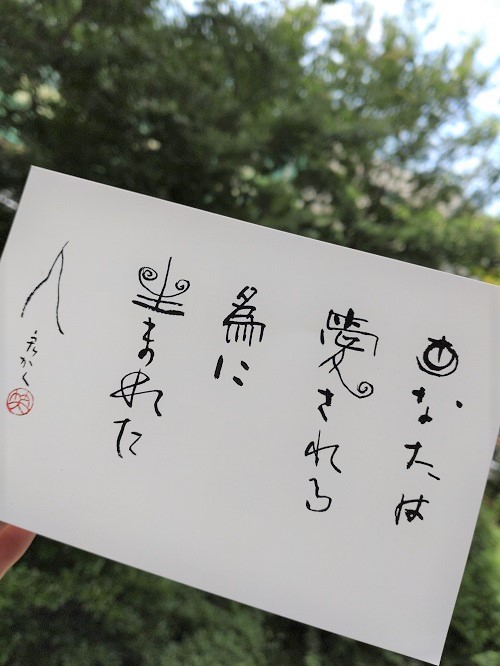 あなたは
愛される
為に
生まれた
人